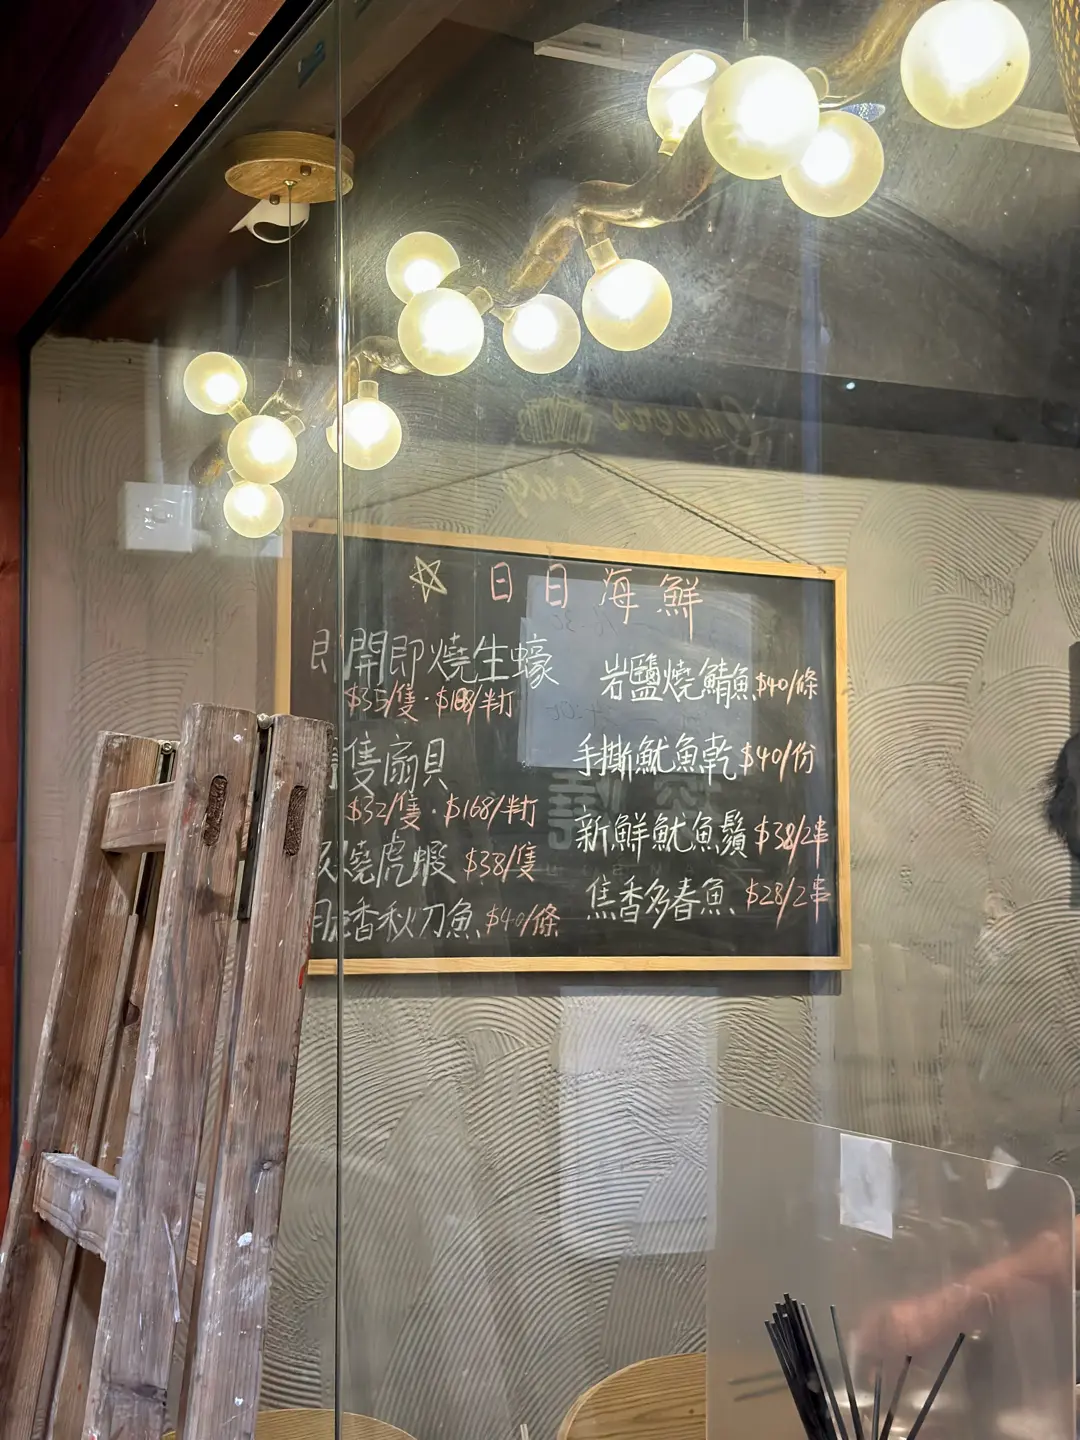 ☆ 日日海鮮
即開即燒生蠔
$35/隻·$188/半打
隻扇貝
$32/隻·$168/半打
燒虎蝦 $38/隻
脂香秋刀魚 $40/條
岩鹽燒鯖魚 $40/條
手撕魷魚乾 $40/份
新鮮魷魚鬚 $38/2串
焦香多春魚 $28/2串
Cheers